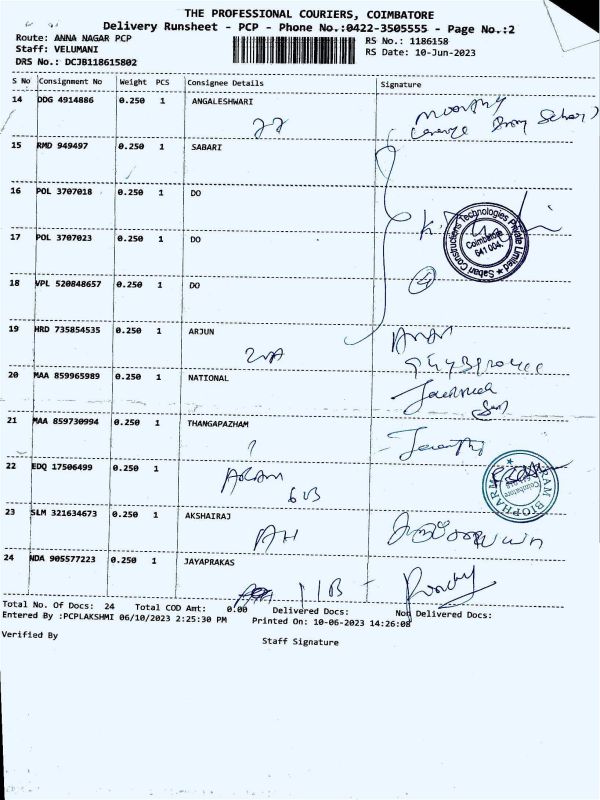 THE PROFESSIONAL COURIERS, COIMBATORE
Delivery Runsheet - PCP - Phone No.:0422-3505555 - Page No.:2
Route: ANNA NAGAR PCP
RS No.: 1186158
Staff: VELUMANI
RS Date: 10-Jun-2023
DRS No.: DCJB118615802
S No Consignment No Weight PCS Consignee Details Signature
14 DDG 4914886 0.250 1 ANGALESHWARI
Moorthy
15 RMD 949497 0.250 1 SABARI
16 POL 3707018 0.250 1 DO
17 POL 3707023 0.250 1 DO
Saban Constructions Technologies Private Limited
Coimbatore
641 004.
4
18 VPL 520848657 0.250 1 DO
19 HRD 735854535 0.250 1 ARJUN
20 MAA 859965989 0.250 1 NATIONAL
21 MAA 859730994 0.250 1 THANGAPAZHAM
Jayanthi
22 EDQ 17506499 0.250 1
ARAM
6B
Coimbatore
23 SLM 321634673 0.250 1 AKSHAIRAJ
AH
24 NDA 905577223 0.250 1 JAYAPRAKAS
11B
Total No. Of Docs: 24 Total COD Amt: 0.00 Delivered Docs: Non Delivered Docs:
Entered By :PCPLAKSHMI 06/10/2023 2:25:30 PM Printed On: 10-06-2023 14:26:08
Verified By
Staff Signature